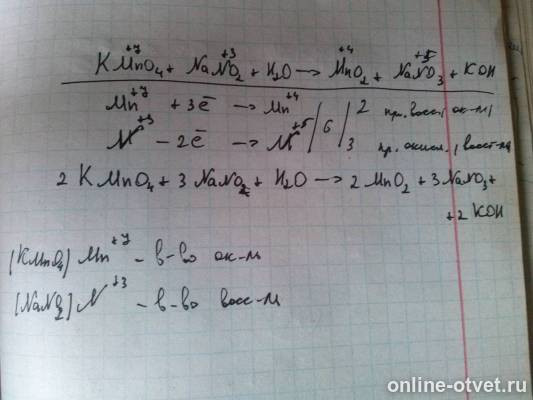 +7 +3 +4 +5
KMnO4 + NaNO2 + H2O → MnO2 + NaNO3 + KOH
Mn+7 + 3ē → Mn+4 | 6 | 2 пр. восс., ок-ль
N+3 - 2ē → N+5 | 3 пр. окисл., восст-ль
2 KMnO4 + 3 NaNO2 + H2O → 2 MnO2 + 3 NaNO3 +
+ 2 KOH
[KMnO4] Mn+7 - в-во ок-ль
[NaNO2] N+3 - в-во восс-ль
online-otvet.ru